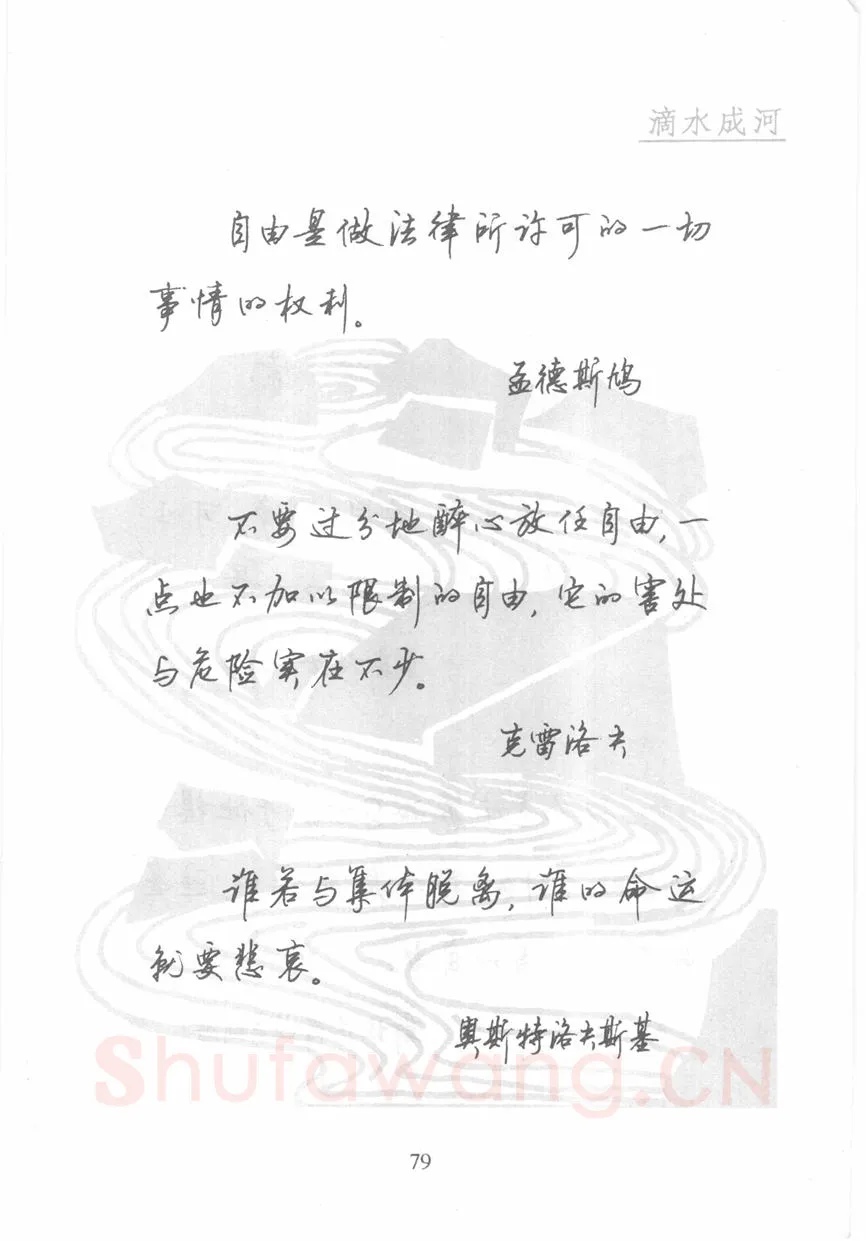 滴水成河
自由是做法律所许可的一切
事情的权利。
孟德斯鸠
不要过分地醉心放任自由,一
点也不加以限制的自由,它的害处
与危险实在不少。
克雷洛夫
谁若与集体脱离,谁的命运
就要悲哀。
奥斯特洛夫斯基
Shufawang.CN
79